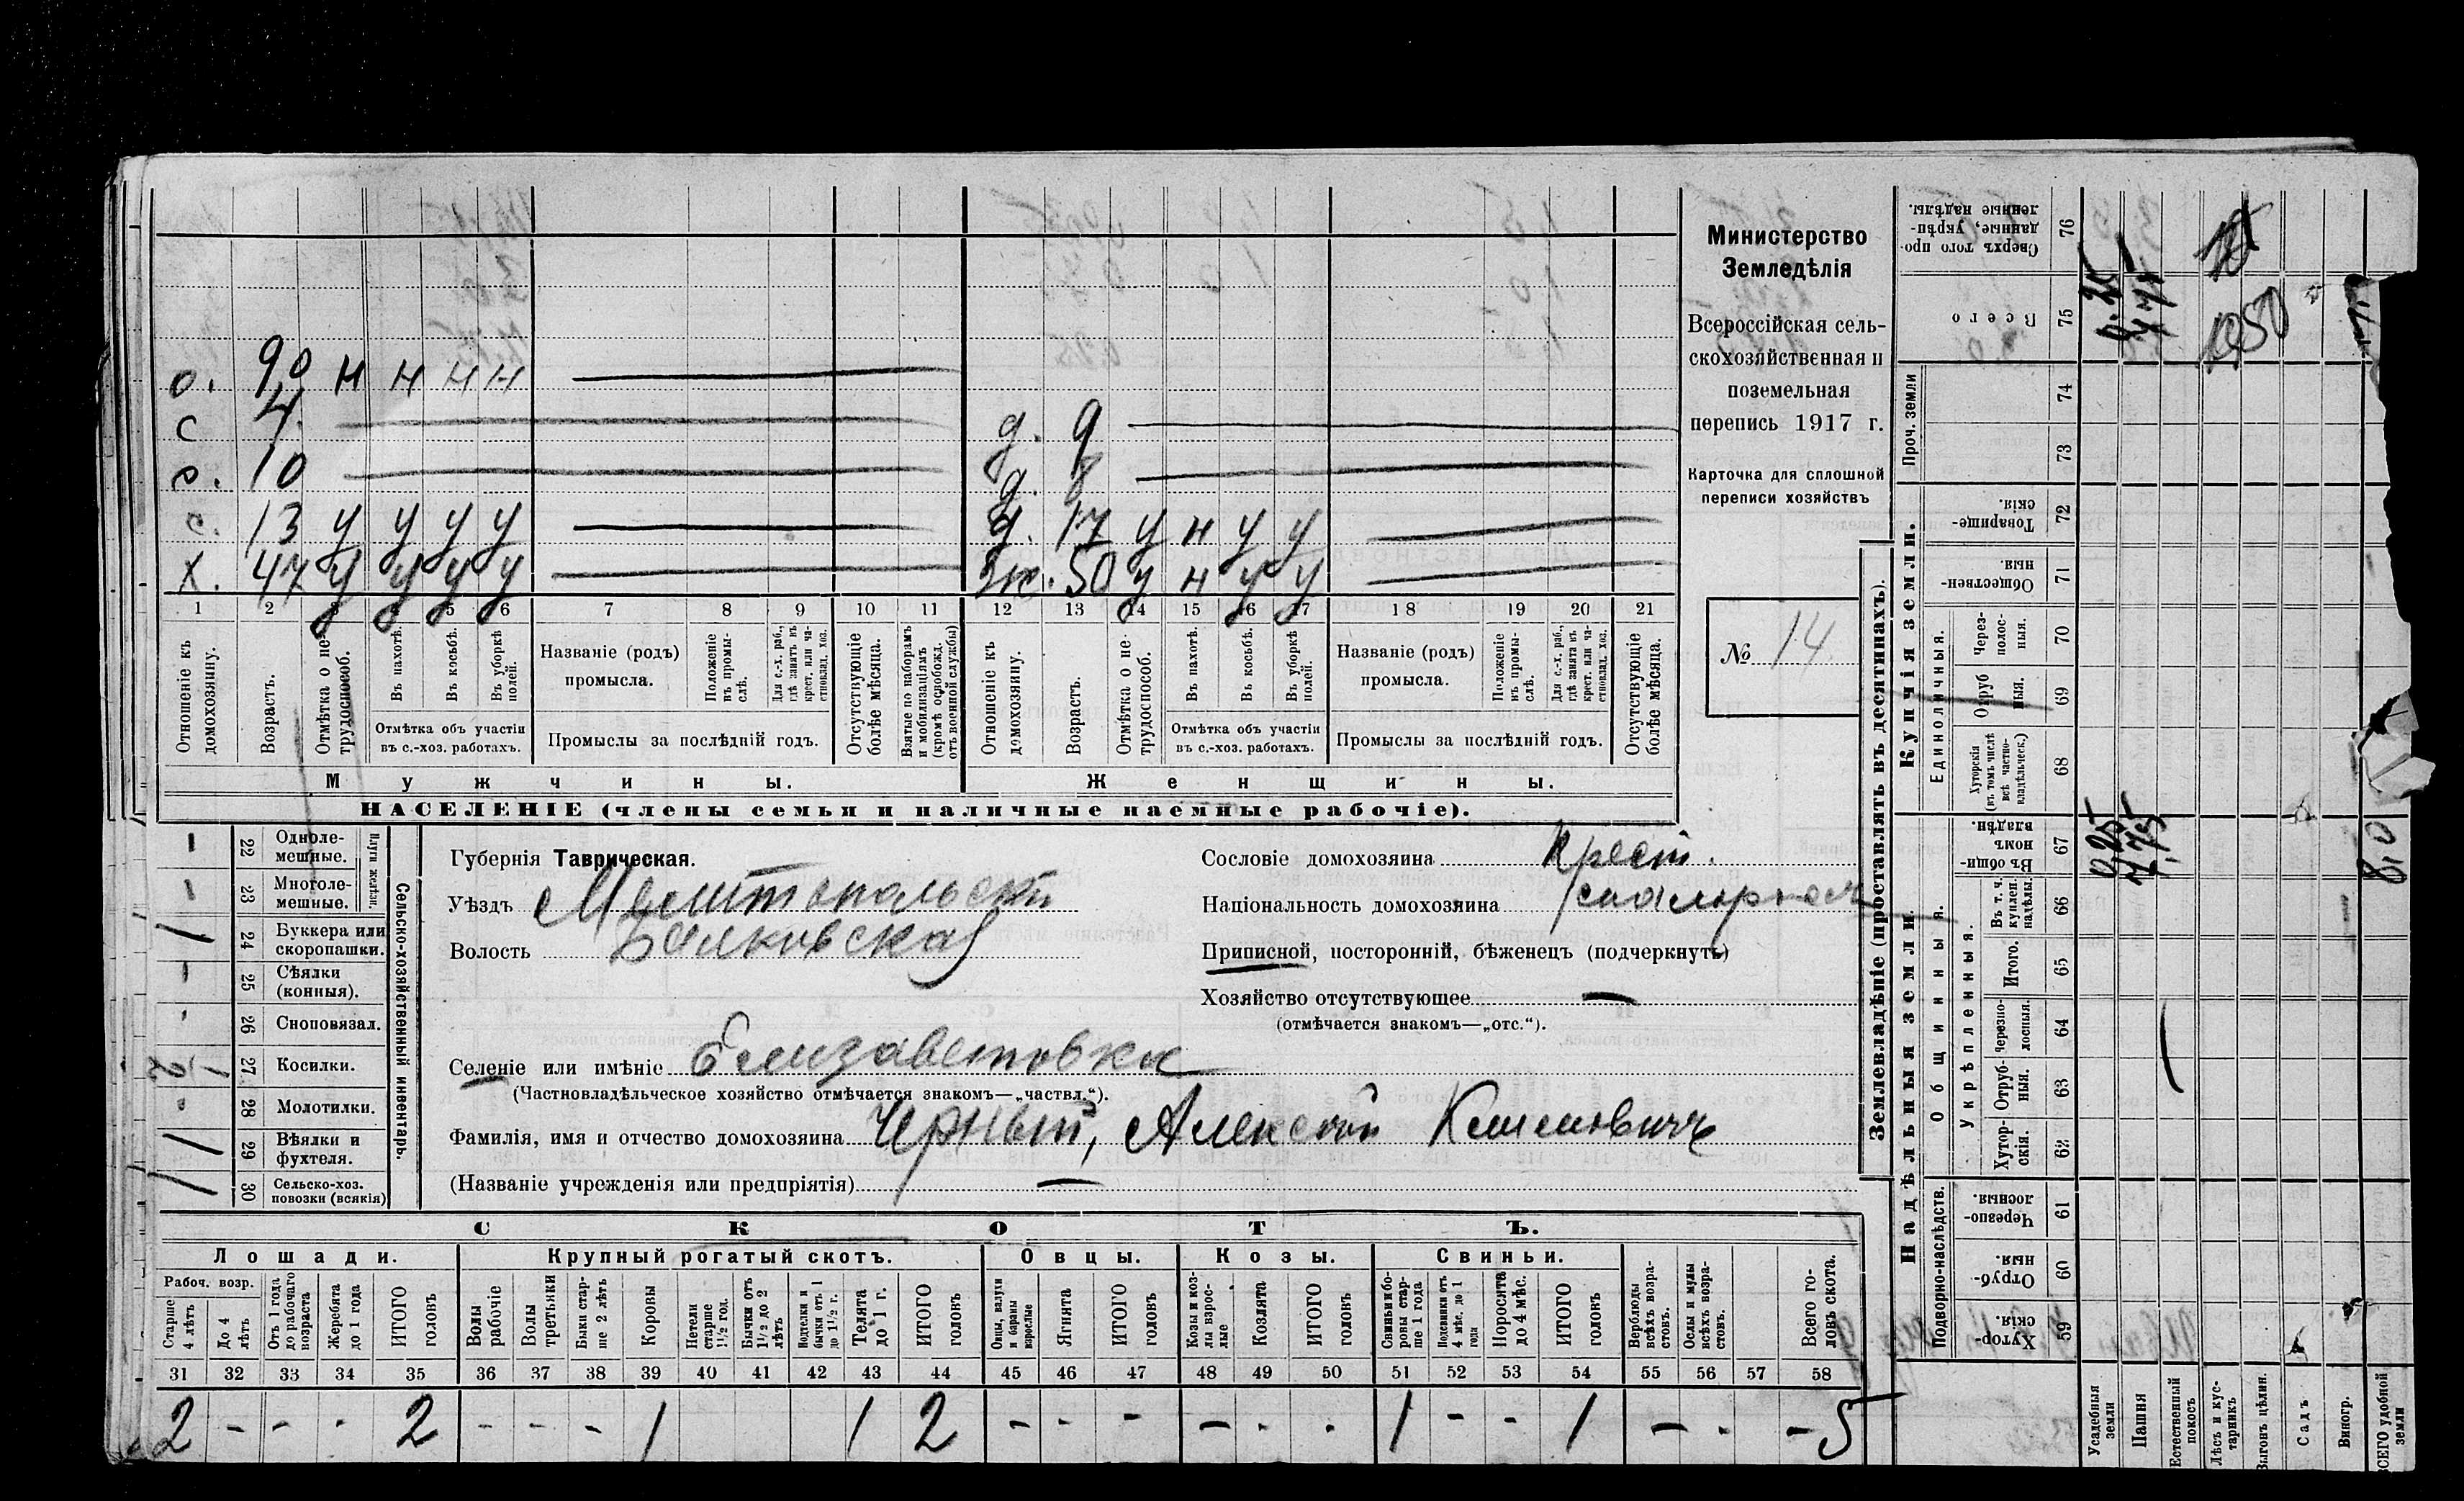 Министерство
Земледѣлія
Всероссійская сель-
скохозяйственная и
поземельная
перепись 1917 г.
Карточка для сплошной
переписи хозяйствъ
№ 14
о. 90 н н н н
с 4
с. 10
с. 13 у у у у
х. 47 у у у у
д. 9
д. 8
д. 17 у н у у
ж. 50 у н у у
1 2 3 4 5 6 7 8 9 10 11 12 13 14 15 16 17 18 19 20 21
Отношеніе къ домохозяину.
Возрастъ.
Отмѣтка о не-трудоспособ.
Въ пахотѣ.
Въ косьбѣ.
Въ уборкѣ полей.
Отмѣтка объ участіи
въ с.-хоз. работахъ.
Названіе (родъ)
промысла.
Положеніе въ промы-слѣ.
Для с.-х. раб., гдѣ занятъ въ крест. или ча-стновлад. хоз.
Промыслы за послѣдній годъ.
Отсутствующіе болѣе мѣсяца.
Взятые по наборамъ и мобилизаціямъ (кромѣ освобожд. отъ военной службы)
Отношеніе къ домохозяину.
Возрастъ.
Отмѣтка о не-трудоспособ.
Въ пахотѣ.
Въ косьбѣ.
Въ уборкѣ полей.
Отмѣтка объ участіи
въ с.-хоз. работахъ.
Названіе (родъ)
промысла.
Положеніе въ промы-слѣ.
Для с.-х. раб., гдѣ занята въ крест. или ча-стновлад. хоз.
Промыслы за послѣдній годъ.
Отсутствующіе болѣе мѣсяца.
Мужчины.
Женщины.
НАСЕЛЕНІЕ (члены семьи и наличные наемные рабочіе).
Сельско-хозяйственный инвентарь.
Плуги желѣзн.
– 22 Одноле-мешные.
– 23 Многоле-мешные.
1 24 Буккера или скоропашки.
– 25 Сѣялки (конныя).
26 Сноповязал.
27 Косилки.
28 Молотилки.
1 29 Вѣялки и фухтеля.
1 30 Сельско-хоз. повозки (всякія)
Губернія Таврическая.
Уѣздъ Мелитопольскій
Волость Балковская
Сословіе домохозяина Крест.
Національность домохозяина
Приписной, посторонній, бѣженецъ (подчеркнуть)
Хозяйство отсутствующее —
(отмѣчается знакомъ—„отс.“).
Селеніе или имѣніе Елизаветовка
(Частновладѣльческое хозяйство отмѣчается знакомъ—„частвл.“).
Фамилія, имя и отчество домохозяина Черный, Алексѣй
(Названіе учрежденія или предпріятія) —
СКОТЪ.
Лошади. Крупный рогатый скотъ. Овцы. Козы. Свиньи.
Рабоч. возр.
Старше 4 лѣтъ
До 4 лѣтъ
Отъ 1 года до рабочаго возраста
Жеребята до 1 года
ИТОГО головъ
Волы рабочіе
Волы третьяки
Быки стар-ше 2 лѣтъ
Коровы
Нетели старше 1½ год.
Бычки отъ 1½ до 2 лѣтъ
Подтелки и бычки отъ 1 до 1½ г.
Телята до 1 г.
ИТОГО головъ
Овцы, валухи и бараны взрослые
Ягнята
ИТОГО головъ
Козы и коз-лы взрос-лые
Козлята
ИТОГО головъ
Свиньи и бо-ровы стар-ше 1 года
Подсвинки отъ 4 мѣс. до 1 года
Поросята до 4 мѣс.
ИТОГО головъ
Верблюды всѣхъ возра-стовъ.
Ослы и мулы всѣхъ возра-стовъ.
Всего го-ловъ скота.
31 32 33 34 35 36 37 38 39 40 41 42 43 44 45 46 47 48 49 50 51 52 53 54 55 56 57 58
2 - - - 2 - - - 1 1 2 - - - - - - 1 - - 1 - - - 5
Землевладѣніе (проставлять въ десятинахъ).
Надѣльныя земли.
Купчія земли.
Проч. земли
Сверхъ того про-данные, укрѣп-ленные надѣлы. 76
Всего 75
74
73
Товарище-скія 72
Обществен-ныя. 71
Единоличныя.
Через-полос-ныя. 70
Отруб-ныя. 69
Хуторскія (въ томъ числѣ всѣ частно-владѣльческ.) 68
Общинныя.
Въ общин-номъ владѣн. 67
Укрѣпленныя.
Въ т. ч. куплен. надѣлы 66
Итого. 65
Черезпо-лосныя. 64
Отруб-ныя. 63
Хутор-скія. 62
Подворно-наслѣдств.
Черезпо-лосныя 61
Отруб-ныя. 60
Хутор-скія. 59
Усадебныя земли
Пашня
Естественный покосъ
Лѣсъ и кус-тарникъ
Выгонъ цѣлин.
Садъ
Виногр.
ВСЕГО удобной земли
0.25
7.75
8,0